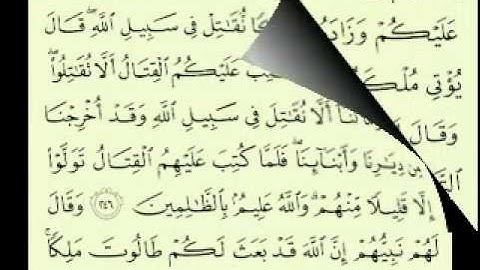 عَلَيْكُمْ نُّقَٰتِلْ فِى سَبِيلِ ٱللَّهِ ۖ قَالَ
يُؤْتِى عَلَيْكُمُ ٱلْقِتَالُ أَلَّا تُقَٰتِلُوا۟ ۖ
وَقَالَ أَلَّا نُقَٰتِلَ فِى سَبِيلِ ٱللَّهِ وَقَدْ أُخْرِجْنَا
مِن دِيَٰرِنَا وَأَبْنَآئِنَا ۖ فَلَمَّا كُتِبَ عَلَيْهِمُ ٱلْقِتَالُ تَوَلَّوْا۟
إِلَّا قَلِيلًا مِّنْهُمْ ۗ وَٱللَّهُ عَلِيمٌۢ بِٱلظَّٰلِمِينَ ٢٤٦ وَقَالَ
لَهُمْ نَبِيُّهُمْ إِنَّ ٱللَّهَ قَدْ بَعَثَ لَكُمْ طَالُوتَ مَلِكًا ۚ